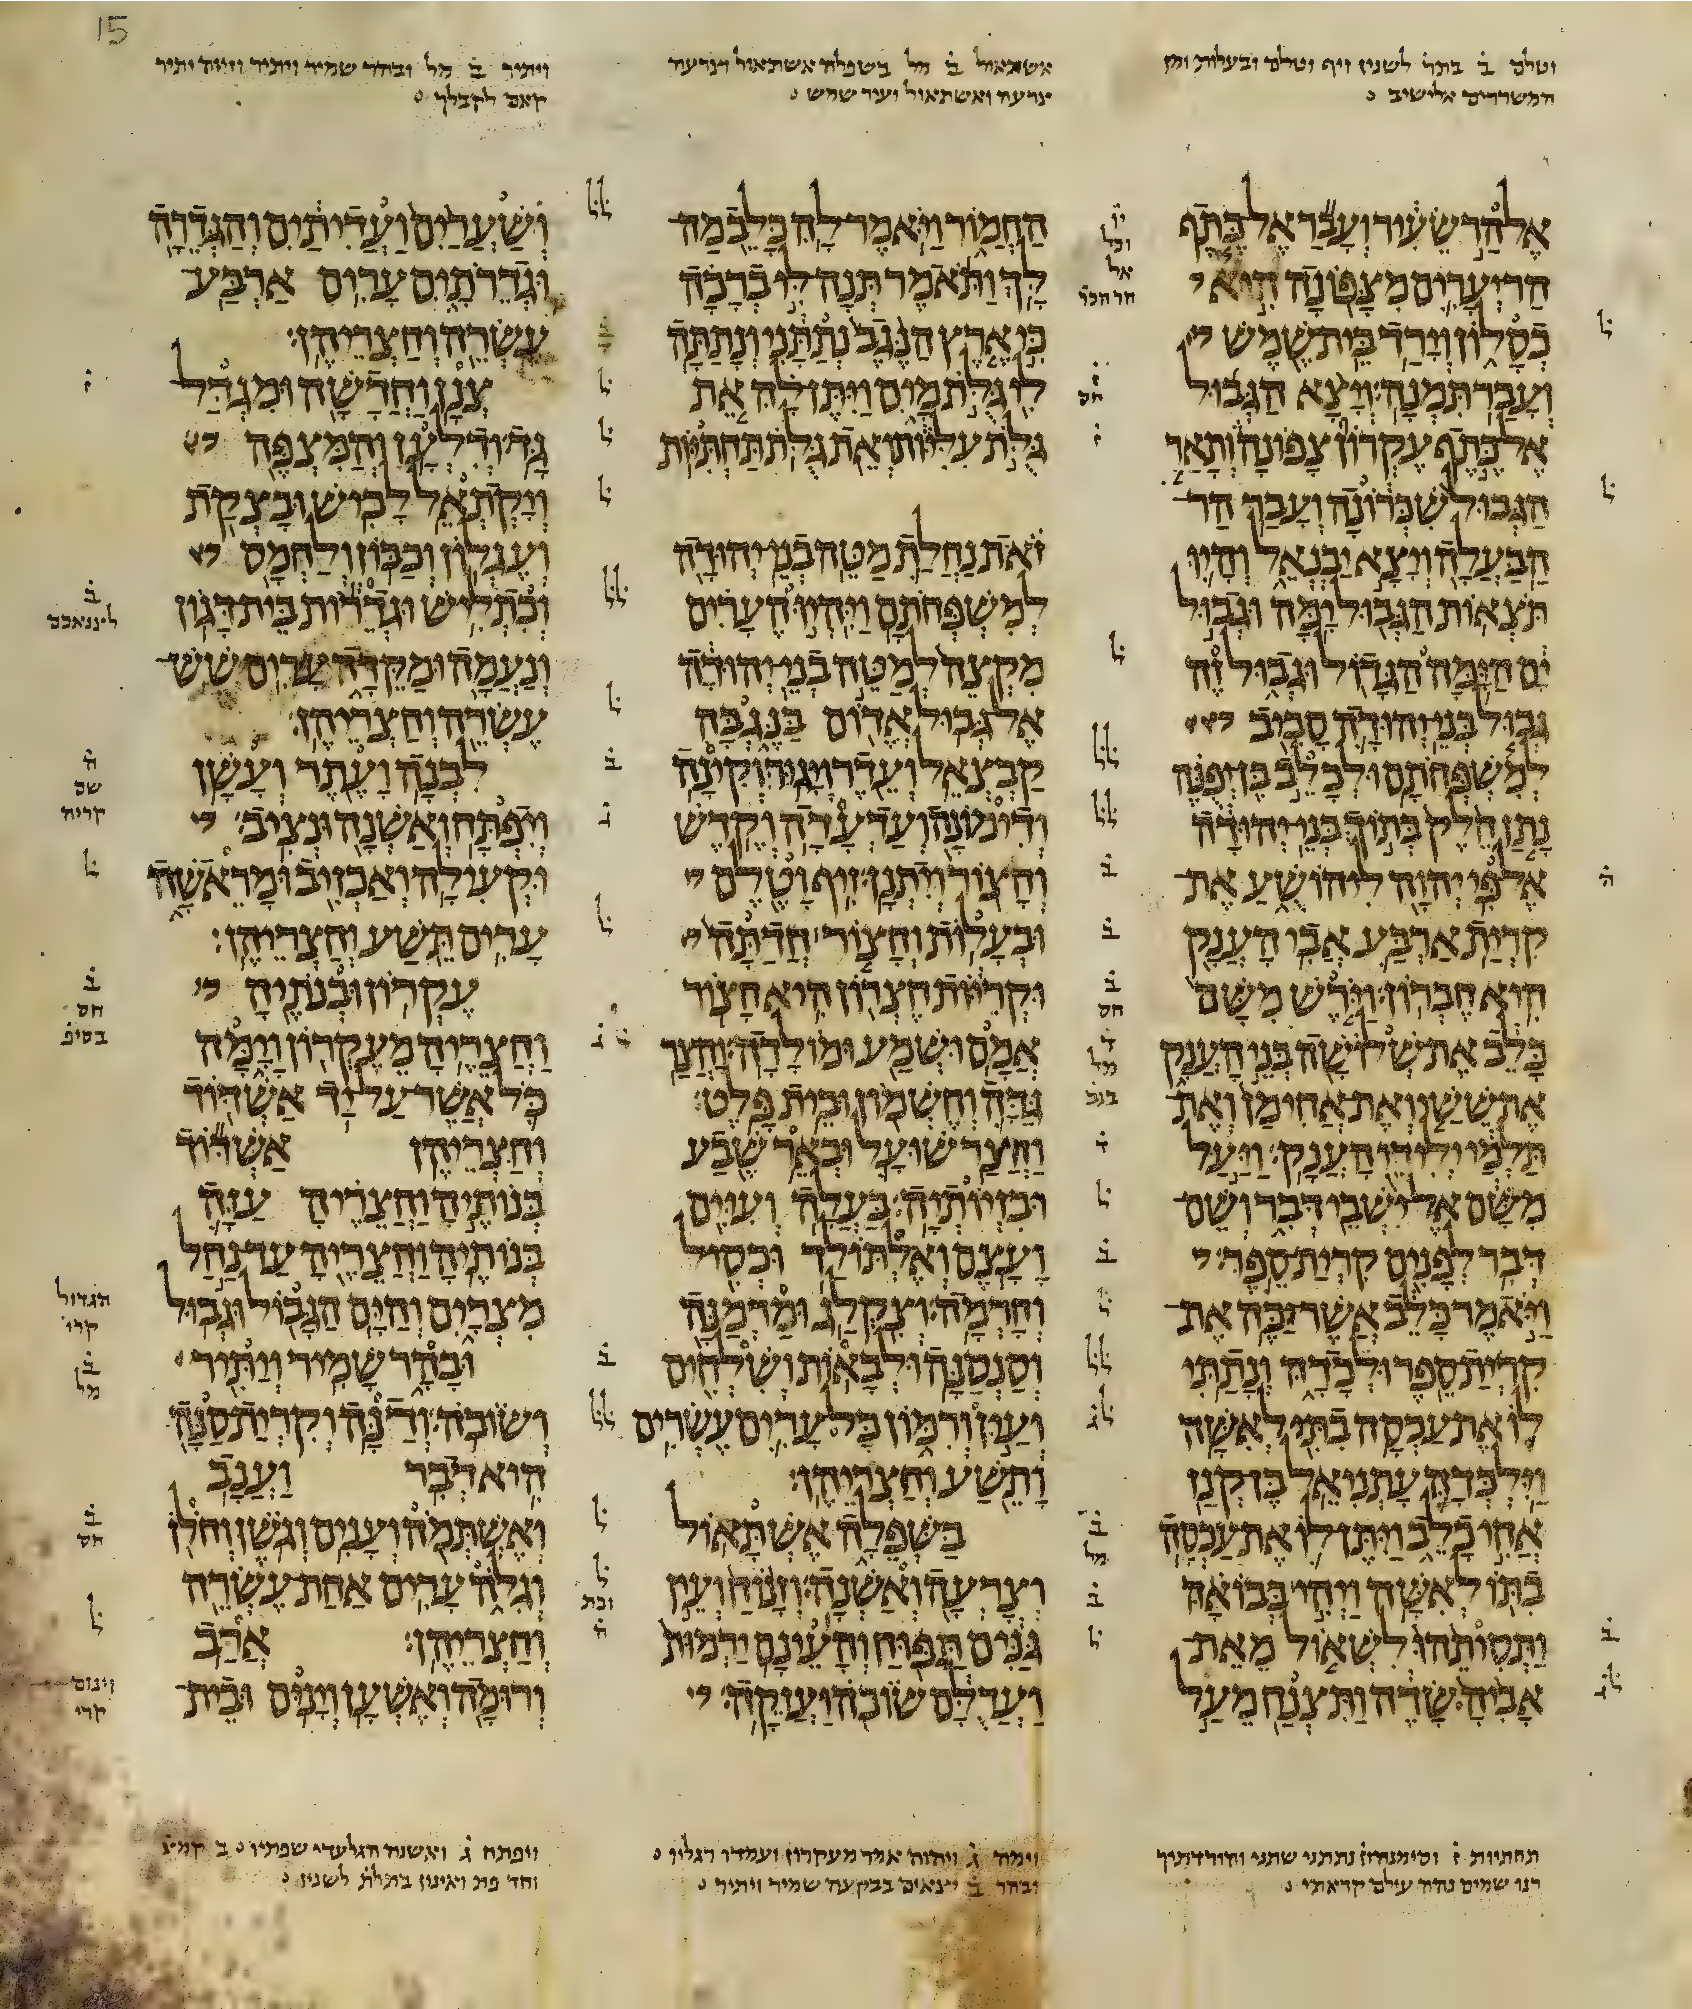 וטלם ב בתר לשנין זיף וטלם ובעלות ומן
המשררים אלישיב
אשתאול ב מל בשפלה אשתאול דנרעה
צרעה ואשתאול ועיר שמש
ויתיר ב מל ובהר שמיר ויתיר
קאם לקבלך
אל הר שעיר ועבר אל כתף
הר יערים מצפונה היא
כסלון וירד בית שמש
ועבר תמנה׃ ויצא הגבול
אל כתף עקרון צפונה ותאר
הגבול שכרונה ועבר הר־
הבעלה ויצא יבנאל והיו
תצאות הגבול ימה׃ וגבול
ים הימה הגדול וגבול זה
גבול בני יהודה סביב
למשפחתם׃ ולכלב בן יפנה
נתן חלק בתוך בני יהודה
אל פי יהוה ליהושע את־
קרית ארבע אבי הענק
היא חברון׃ וירש משם
כלב את שלושה בני הענק
את ששי ואת אחימן ואת־
תלמי ילידי הענק׃ ויעל
משם אל ישבי דבר ושם־
דבר לפנים קרית ספר׃
ויאמר כלב אשר יכה את־
קרית ספר ולכדה ונתתי
לו את עכסה בתי לאשה׃
וילכדה עתניאל בן קנז
אחי כלב ויתן לו את עכסה
בתו לאשה׃ ויהי בבואה
ותסיתהו לשאול מאת־
אביה שדה ותצנח מעל
החמור ויאמר לה כלב מה־
לך׃ ותאמר תנה לי ברכה
כי ארץ הנגב נתתני ונתתה
לי גלת מים ויתן לה את
גלת עליות ואת גלת תחתיות׃
זאת נחלת מטה בני יהודה
למשפחתם׃ ויהיו הערים
מקצה למטה בני יהודה
אל גבול אדום בנגבה
קבצאל ועדר ויגור׃ וקינה
ודימונה ועדעדה׃ וקדש
וחצור ויתנן׃ זיף וטלם
ובעלות׃ וחצור חדתה
וקריות חצרון היא חצור׃
אמם ושמע ומולדה׃ וחצר
גדה וחשמון ובית פלט׃
וחצר שועל ובאר שבע
ובזיותיה׃ בעלה ועיים
ועצם׃ ואלתולד וכסיל
וחרמה׃ וצקלג ומדמנה
וסנסנה׃ ולבאות ושלחים
ועין ורמון כל ערים עשרים
ותשע וחצריהן׃
בשפלה אשתאול
וצרעה ואשנה׃ וזנוח ועין
גנים תפוח והעינם׃ ירמות
ועדלם שוכה ועזקה׃
ושערים ועדיתים והגדרה
וגדרתים ערים ארבע־
עשרה וחצריהן׃
צנן וחדשה ומגדל
גד׃ ודלען והמצפה
ויקתאל׃ לכיש ובצקת
ועגלון׃ וכבון ולחמס
וכתליש׃ וגדרות בית דגון
ונעמה ומקדה ערים שש־
עשרה וחצריהן׃
לבנה ועתר ועשן׃
ויפתח ואשנה ונציב׃
וקעילה ואכזיב ומראשה
ערים תשע וחצריהן׃
עקרון ובנתיה
וחצריה׃ מעקרון וימה
כל אשר על יד אשדוד
וחצריהן׃ אשדוד
בנותיה וחצריה עזה
בנותיה וחצריה עד נחל
מצרים והים הגבול וגבול׃
ובהר שמיר ויתיר
ושוכה׃ ודנה וקרית סנה
היא דבר׃ וענב
ואשתמה וענים׃ וגשן וחלן
וגלה ערים אחת עשרה
וחצריהן׃ ארב
ורומה ואשען׃ וינים ובית־
הגדול
קרי
תחתיות ז וסימנהון נתתני שתני והורדתיך
רנו שמים נהר עילם קראתי
וימה ג ויהוה אמר מעקרון ועמדו רגליו
ובהר ב יצאים בבקעה שמיר ויתיר
ויפתח ג ואשנה הגלעדי שפתיו ב קמצ
וחד פת ואינון בתלת לשנין